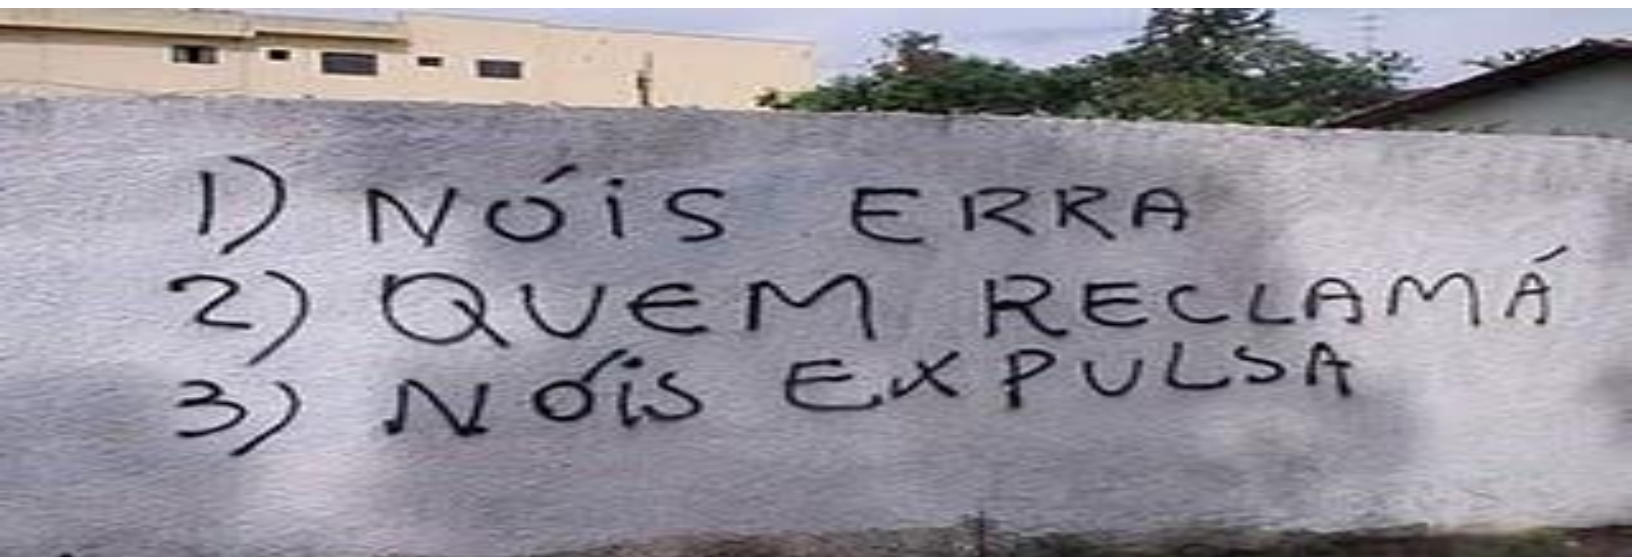 1) NÓIS ERRA
2) QUEM RECLAMÁ
3) NÓIS EXPULSA